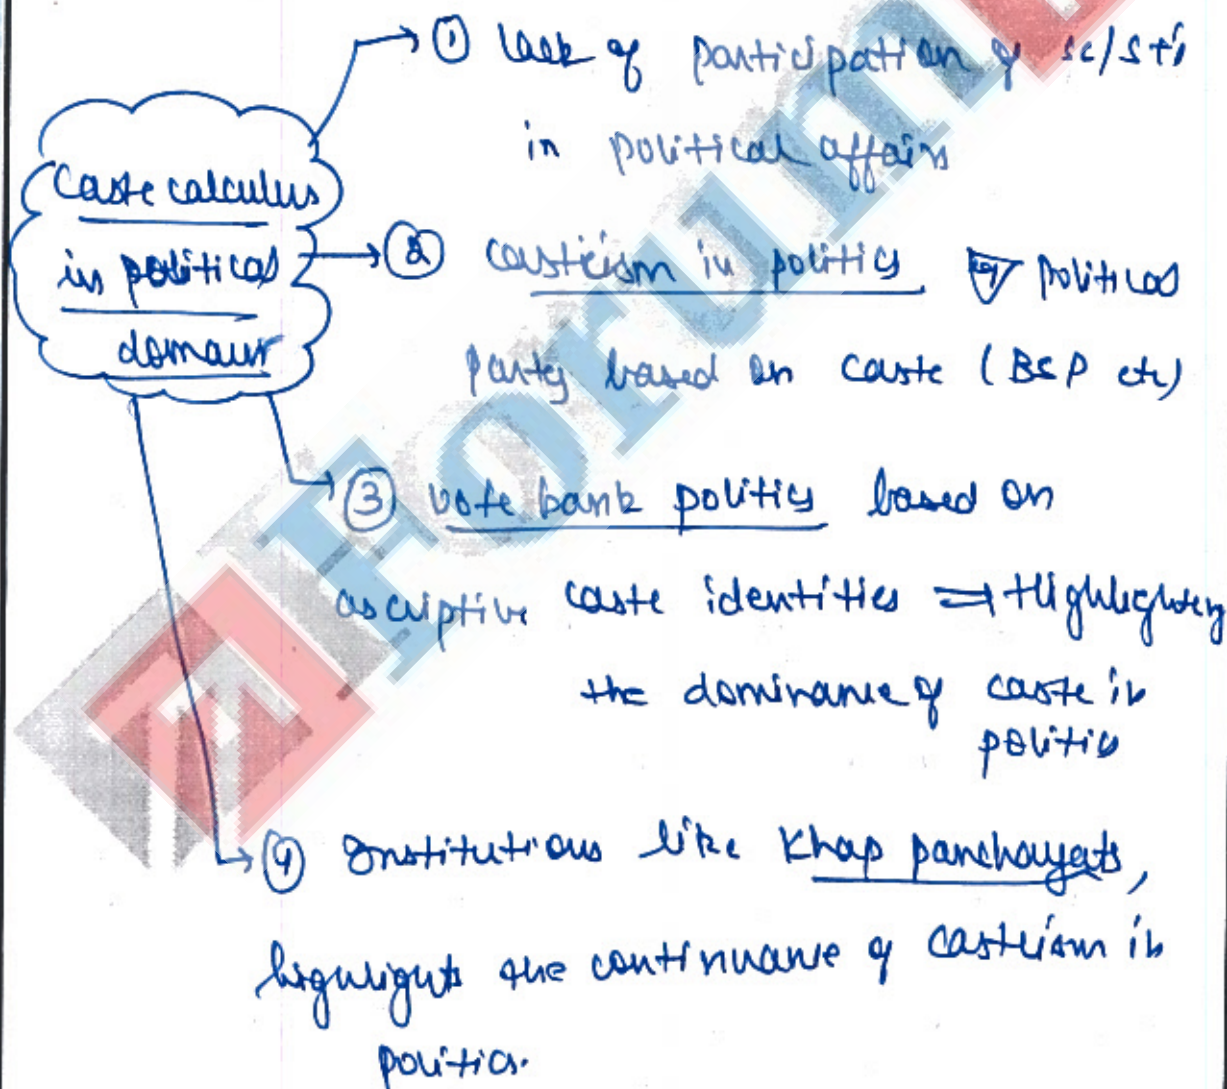 ① lack of participation of SC/ST's
in political affairs
Caste calculus
in political
domain
② casteism in politics eg political
party based on caste (BSP etc)
③ vote bank politics based on
ascriptive caste identities ⇒ Highlighting
the dominance of caste in
politics
④ Institutions like Khap panchayats,
highlights the continuance of casteism in
politics.
Forum